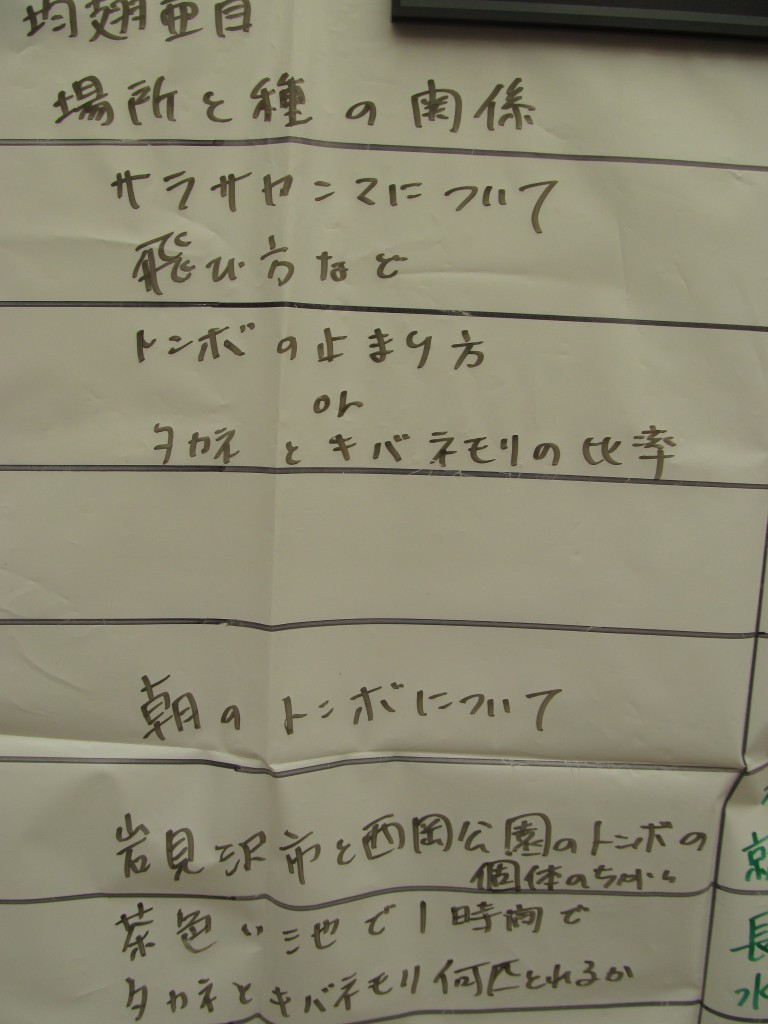 均翅亜目
場所と種の関係
サラサヤンマについて
飛び方など
トンボの止まり方
or
タカネとキバネモリの比率
朝のトンボについて
岩見沢市と西岡公園のトンボの
個体のちがい
茶色い池で1時間で
タカネとキバネモリ何匹とれるか
長
水